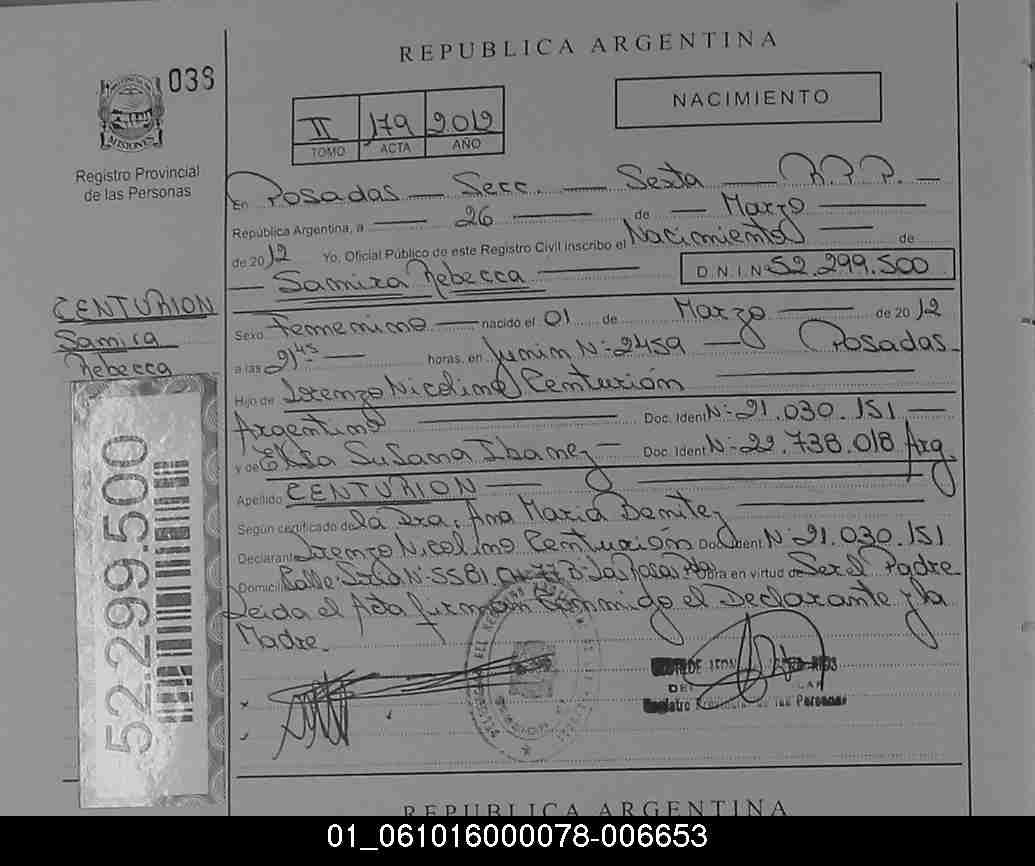 REPUBLICA ARGENTINA
038
MISIONES
Registro Provincial
de las Personas
NACIMIENTO
II 179 2012
TOMO ACTA AÑO
En Posadas — Secc. — Sexta — R.P.P. —
República Argentina, a — 26 — de — Marzo —
de 2012 Yo, Oficial Público de este Registro Civil inscribo el Nacimiento — de
— Samira Rebecca — D.N.I. Nº 52.299.500
CENTURION
Samira
Rebecca
Sexo Femenino — nacido el 01 de Marzo — de 2012
a las 21⁴⁵ — horas, en Junin Nº 2459 — Posadas
Hijo de Lorenzo Nicolino Centurión —
Argentino — Doc. Ident Nº 21.030.151 —
y de Elisa Susana Ibanez — Doc. Ident Nº 22.738.018 Arg.
Apellido CENTURION —
Según certificado de la Dra. Ana Maria Benitez —
Declarante Lorenzo Nicolino Centurión Doc. Ident Nº 21.030.151
Domicilio Calle Nº 5581 Bº Las Rosas Pdas Obra en virtud de Ser el Padre
Leida el Acta firman Conmigo el Declarante y la
Madre.
Registro Provincial de las Personas
52.299.500
REPUBLICA ARGENTINA
01_061016000078-006653